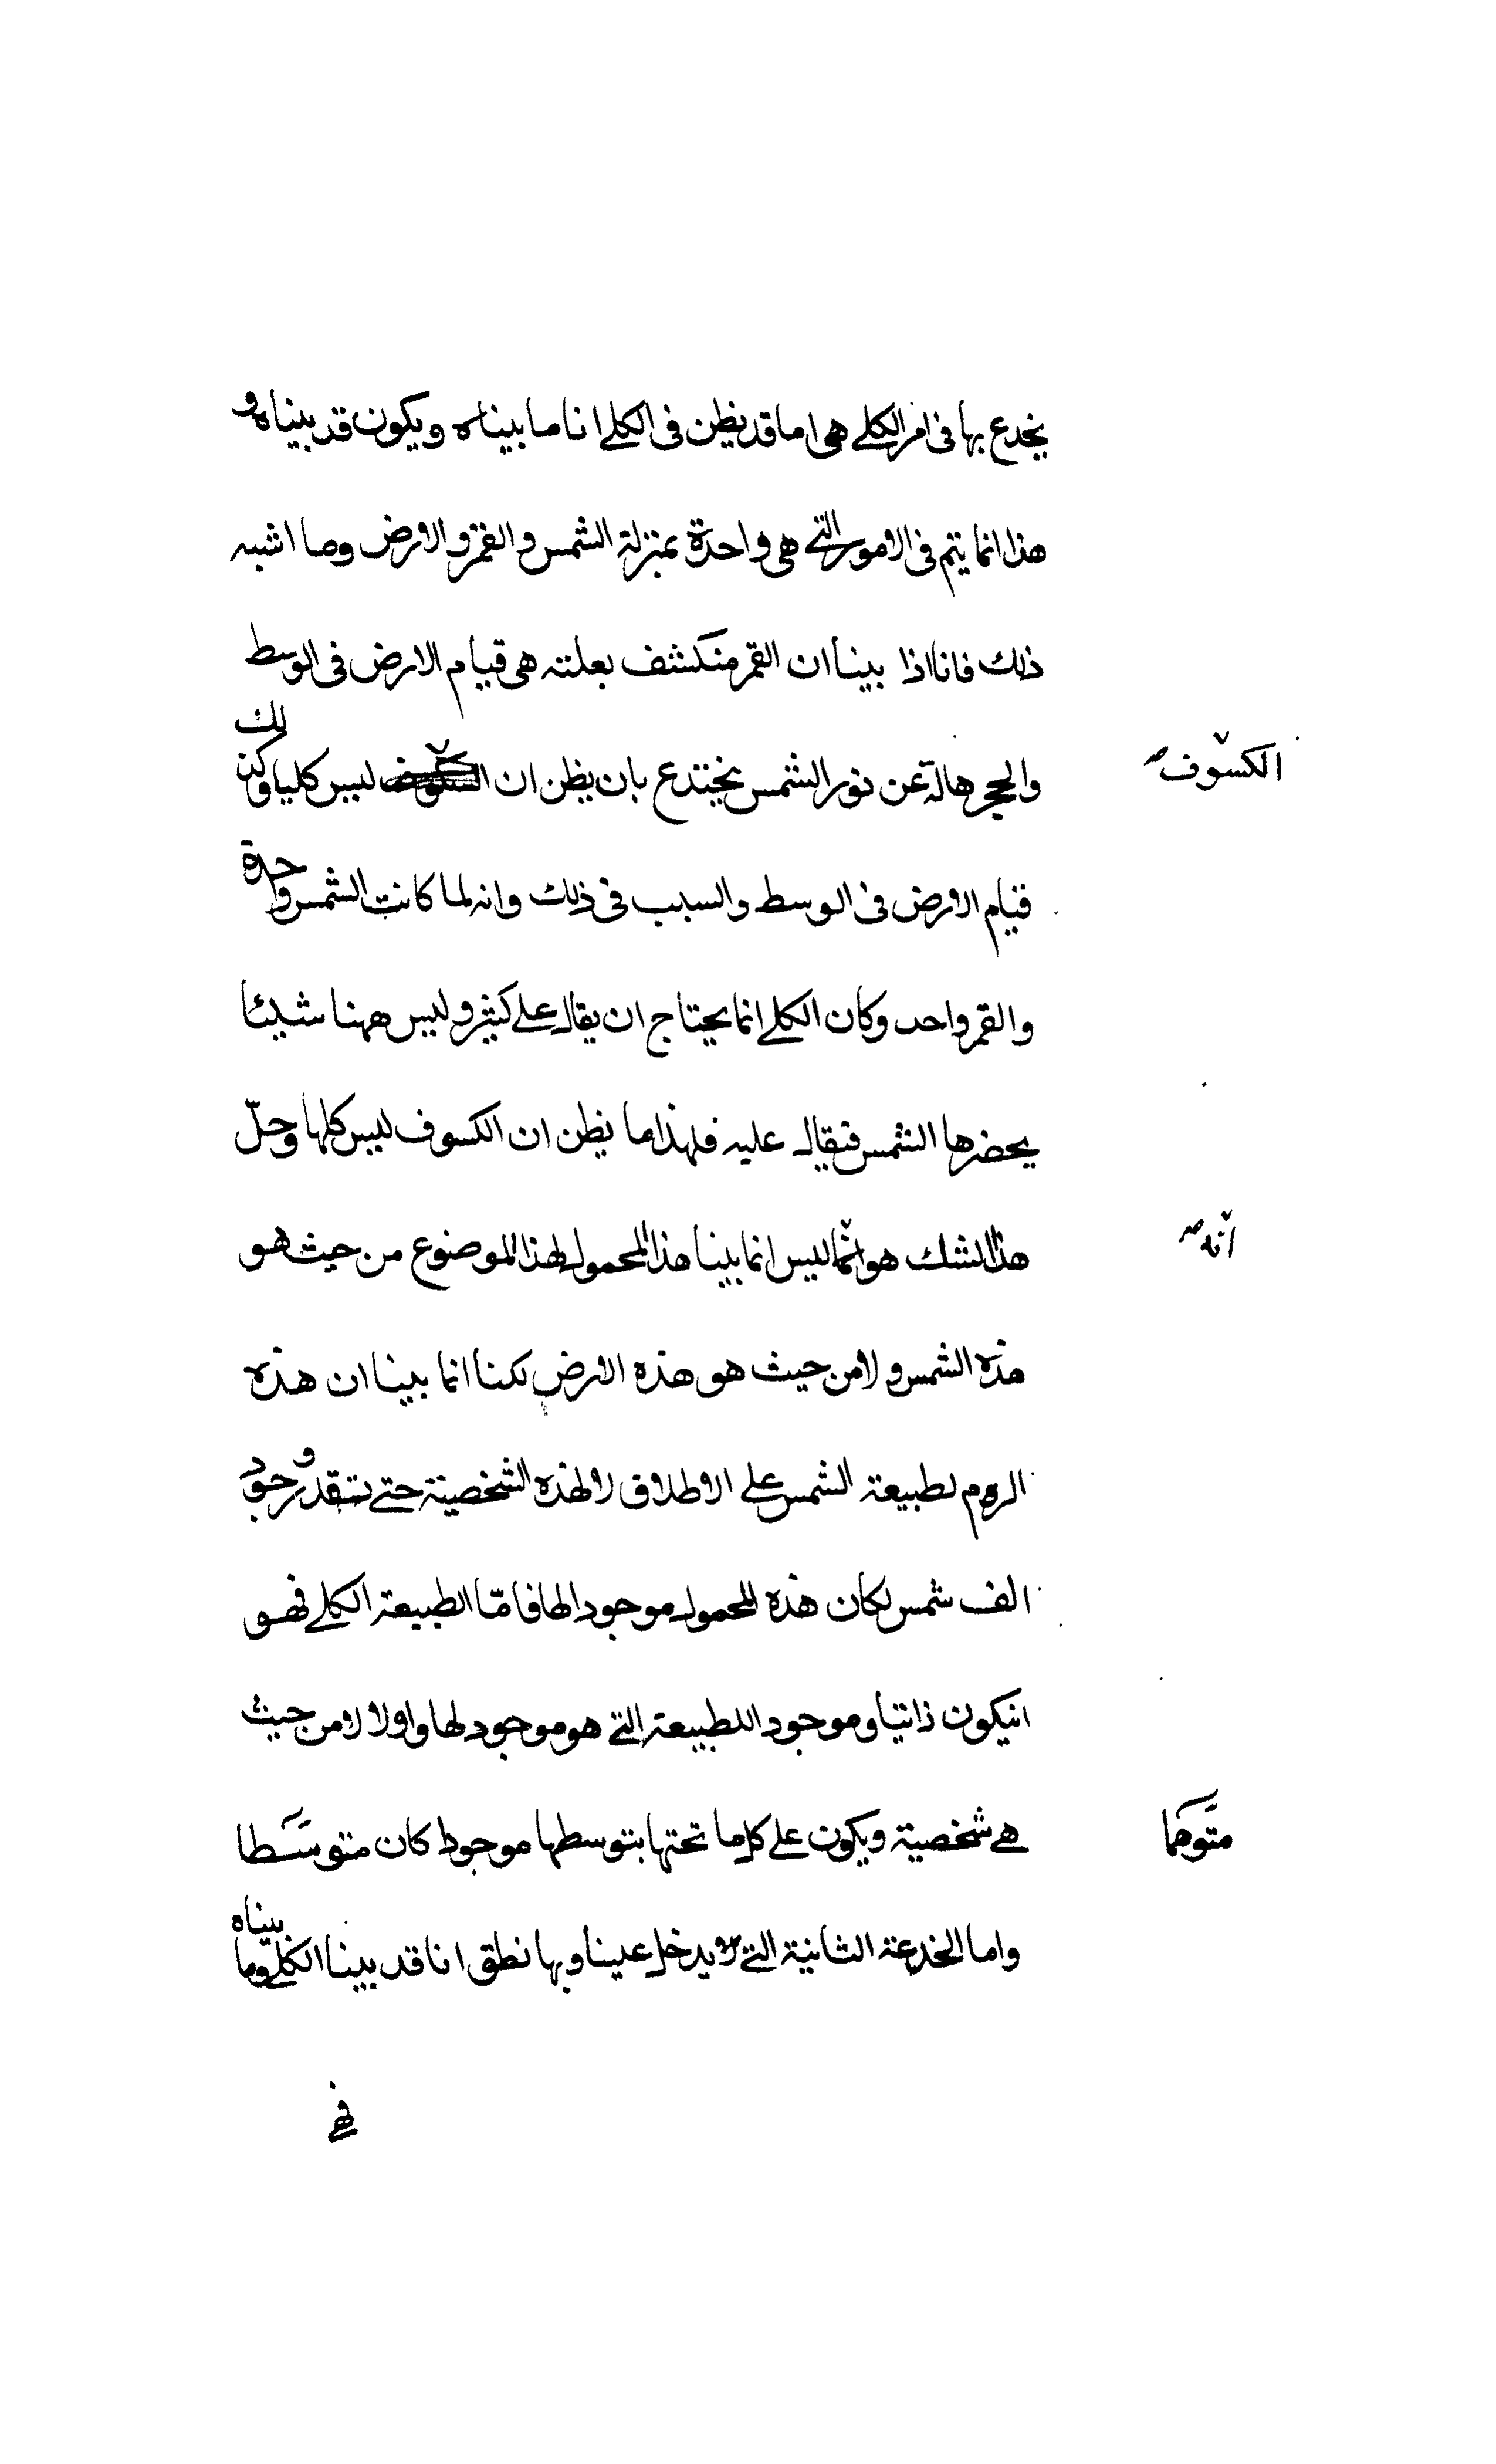 يخدع بها فى امر الكلے هى اما قد يظن فى الكلے انا ما بيناه ويكون قد بيناه و
هذا انما يتم فى الامور التے هى واحدة بمنزلة الشمس والقمر والارض وما اشبه
ذلك فانا اذا بينا ان القمر منكشف بعلته هى قيام الارض فى الوسط
والحجر هالة عن نور الشمس يختدع بان يظن ان ليس كليا وكذلك
الكسوف
قيام الارض فى الوسط والسبب فى ذلك وانه لما كانت الشمس واحدة
والقمر واحد وكان الكلے انما يحتاج ان يقال علے كثير وليس ههنا شيئا
يحضرها الشمس فيقال عليه فلهذا ما يظن ان الكسوف ليس كلها وحلّ
هذا الشك هو انما ليس انما بينا هذا المحمول لهذا الموضوع من حيث هو
انه
هذه الشمس ولا من حيث هو هذه الارض لكنا انما بينا ان هذه
لطبيعة الشمس علے الاطلاق لا لهذه الشخصية حتے نقدر وجود
الف شمس لكان هذه المحمول موجود الها فامّا الطبيعة الكلے فهو
انيكون ذاتيا وموجود اللطبيعة التے هو موجود لها واولا لا من حيث
هے شخصية ويكون علے كل ما تحتها بتوسطها موجودا كان متوسّطا
متوهّما
واما الخدعة الثانية التے لا يدخل علينا وبها نطق انا قد بينا الكلے وما بيناه
فهے